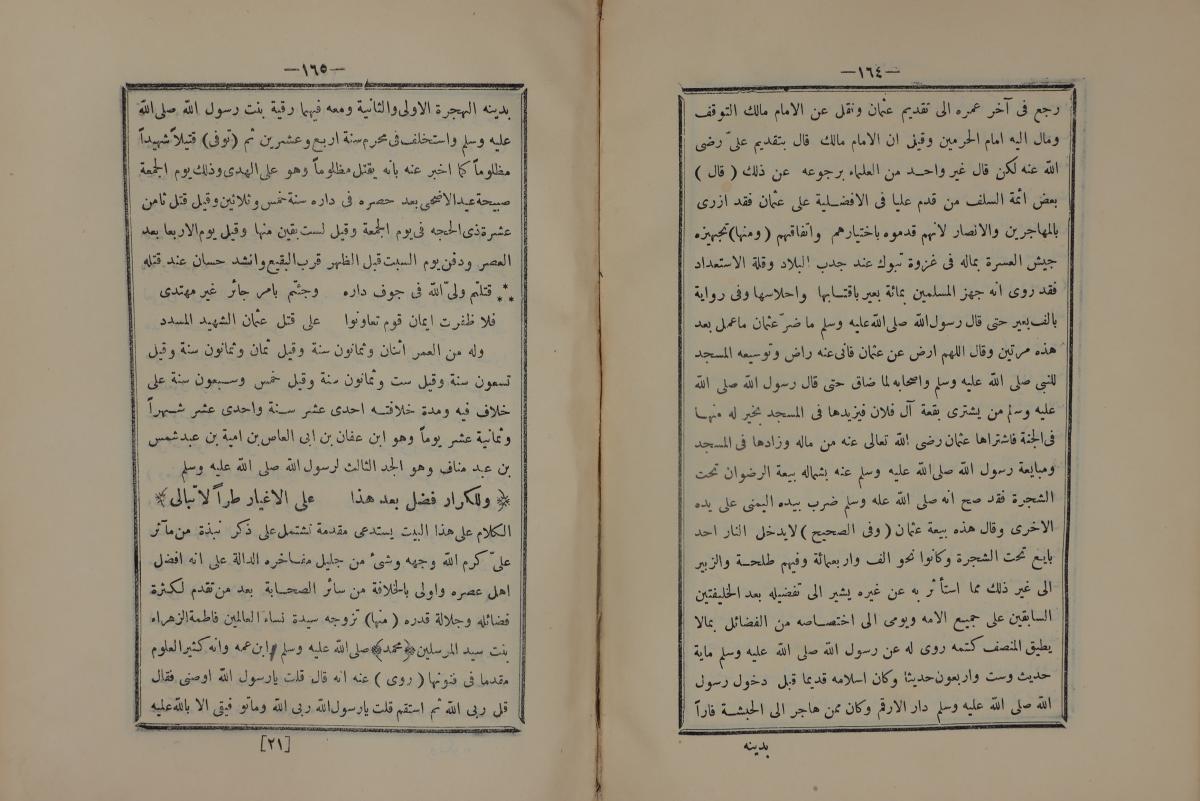 —١٦٤—
رجع فى آخر عمره الى تقديم عثمان ونقل عن الامام مالك التوقف
ومال اليه امام الحرمين وقيل ان الامام مالك قال بتقديم علىّ رضى
الله عنه لكن قال غير واحد من العلماء برجوعه عن ذلك ( قال )
بعض ائمة السلف من قدم عليا فى الافضلية على عثمان فقد ازرى
بالمهاجرين والانصار لانهم قدموه باختيارهم واتفاقهم ( ومنها ) تجهيزه
جيش العسرة بماله فى غزوة تبوك عند جدب البلاد وقلة الاستعداد
فقد روى انه جهز المسلمين بمائة بعير باقتابها واحلاسها وفى رواية
بالف بعير حتى قال رسول الله صلى الله عليه وسلم ما ضرّ عثمان ماعمل بعد
هذه مرتين وقال اللهم ارض عن عثمان فانى عنه راض وتوسيعه المسجد
للنبي صلى الله عليه وسلم واصحابه لما ضاق حتى قال رسول الله صلى الله
عليه وسلم من يشترى بقعة آل فلان فيزيدها فى المسجد بخير له منها
فى الجنة فاشتراها عثمان رضى الله تعالى عنه من ماله وزادها فى المسجد
ومبايعة رسول الله صلى الله عليه وسلم عنه بشماله بيعة الرضوان تحت
الشجرة فقد صح انه صلى الله عله وسلم ضرب بيده اليمنى على يده
الاخرى وقال هذه بيعة عثمان ( وفى الصحيح ) لايدخل النار احد
بايع تحت الشجرة وكانوا نحو الف واربعمائة وفيهم طلحة والزبير
الى غير ذلك مما استأثر به عن غيره يشير الى تفضيله بعد الخليفتين
السابقين على جميع الامه ويومى الى اختصاصه من الفضائل بمالا
يطيق المنصف كتمه روى له عن رسول الله صلى الله عليه وسلم ماية
حديث وست واربعون حديثا وكان اسلامه قديما قبل دخول رسول
الله صلى الله عليه وسلم دار الارقم وكان ممن هاجر الى الحبشة فاراً
بدينه
—١٦٥—
بدينه الهجرة الاولى والثانية ومعه فيهما رقية بنت رسول الله صلى الله
عليه وسلم واستخلف فى محرم سنة اربع وعشرين ثم ( توفى ) قتيلاً شهيداً
مظلوماً كما اخبر عنه بانه يقتل مظلوماً وهو على الهدى وذلك يوم الجمعة
صبيحة عيد الاضحى بعد حصره فى داره سنة خمس وثلاثين وقيل قتل ثامن
عشرة ذى الحجه فى يوم الجمعة وقيل لست بقين منها وقيل يوم الاربعا بعد
العصر ودفن يوم السبت قبل الظهر قرب البقيع وانشد حسان عند قتله
⁂ قتلتم ولىّ الله فى جوف داره وجئتم بامر جائر غير مهتدى
فلا ظفرت ايمان قوم تعاونوا على قتل عثمان الشهيد المسدد
وله من العمر اثنان وثمانون سنة وقيل ثمان وثمانون سنة وقيل
تسعون سنة وقيل ست وثمانون سنة وقيل خمس وسبعون سنة على
خلاف فيه ومدة خلافته احدى عشر سنة واحدى عشر شهراً
وثمانية عشر يوماً وهو ابن عفان بن ابى العاص بن امية بن عبد شمس
بن عبد مناف وهو الجد الثالث لرسول الله صلى الله عليه وسلم
﴿ وللكرار فضل بعد هذا على الاغيار طراً لا تبالى ﴾
الكلام على هذا البيت يستدعى مقدمة تشتمل على ذكر نبذة من مآثر
علىّ كرم الله وجهه وشئ من جليل مفاخره الدالة على انه افضل
اهل عصره واولى بالخلافة من سائر الصحابة بعد من تقدم لكثرة
فضائله وجلالة قدره ( منها ) تزوجه سيدة نساء العالمين فاطمة الزهراء
بنت سيد المرسلين ﴿محمد﴾ صلى الله عليه وسلم وابن عمه وانه كثير العلوم
مقدما فى فنونها ( روى ) عنه انه قال قلت يارسول الله اوصنى فقال
قل ربى الله ثم استقم قلت يارسول الله ربى الله وماتوفيقى الا بالله عليه
[٢١]